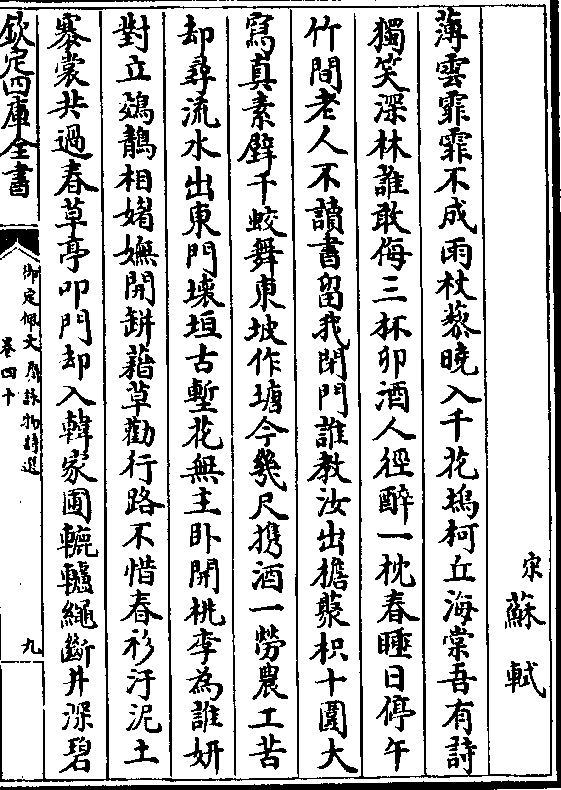 宋蘇軾
薄雲霏霏不成雨杖藜曉入千花塢柯丘海棠吾有詩
獨笑深林誰敢侮三杯卯酒人徑醉一枕春睡日停午
竹間老人不讀書留我閉門誰教汝出檐䕺枳十圍大
寫真素壁千蛟舞東坡作塘今幾尺携酒一勞農工苦
却尋流水出東門壊垣古塹花無主卧開桃李為誰妍
對立鵁鶄相媚嫵開缾藉草勸行路不惜春衫汙泥土
褰裳共過春草亭叩門却入韓家圃轆轤繩斷井深碧
欽定四庫全書
御定佩文齋詠物詩選
卷四十
九